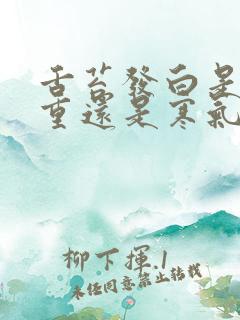 舌苔發白是
重還是寒氣
柳下揮.1
未任同意禁止转载